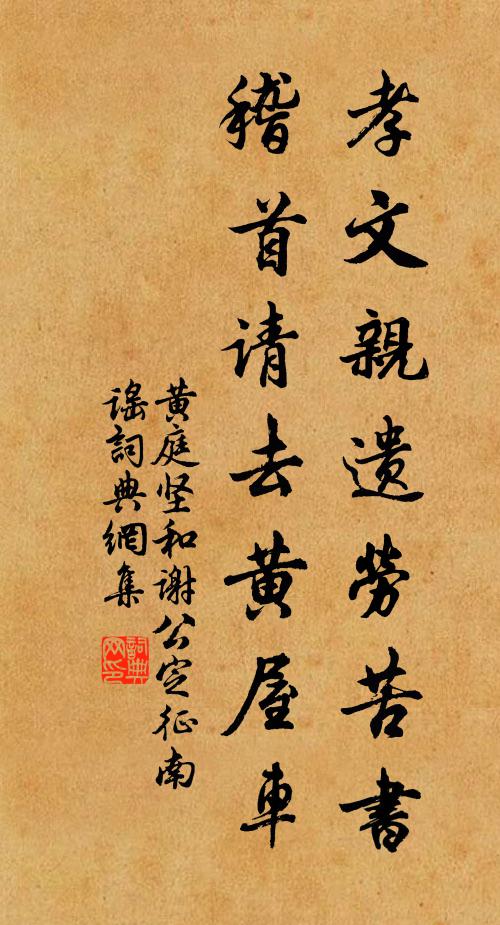 孝文親遗勞苦書
稽首请去黄屋車
黄庭坚和谢公定征南
谣詞典網集
詞典网印